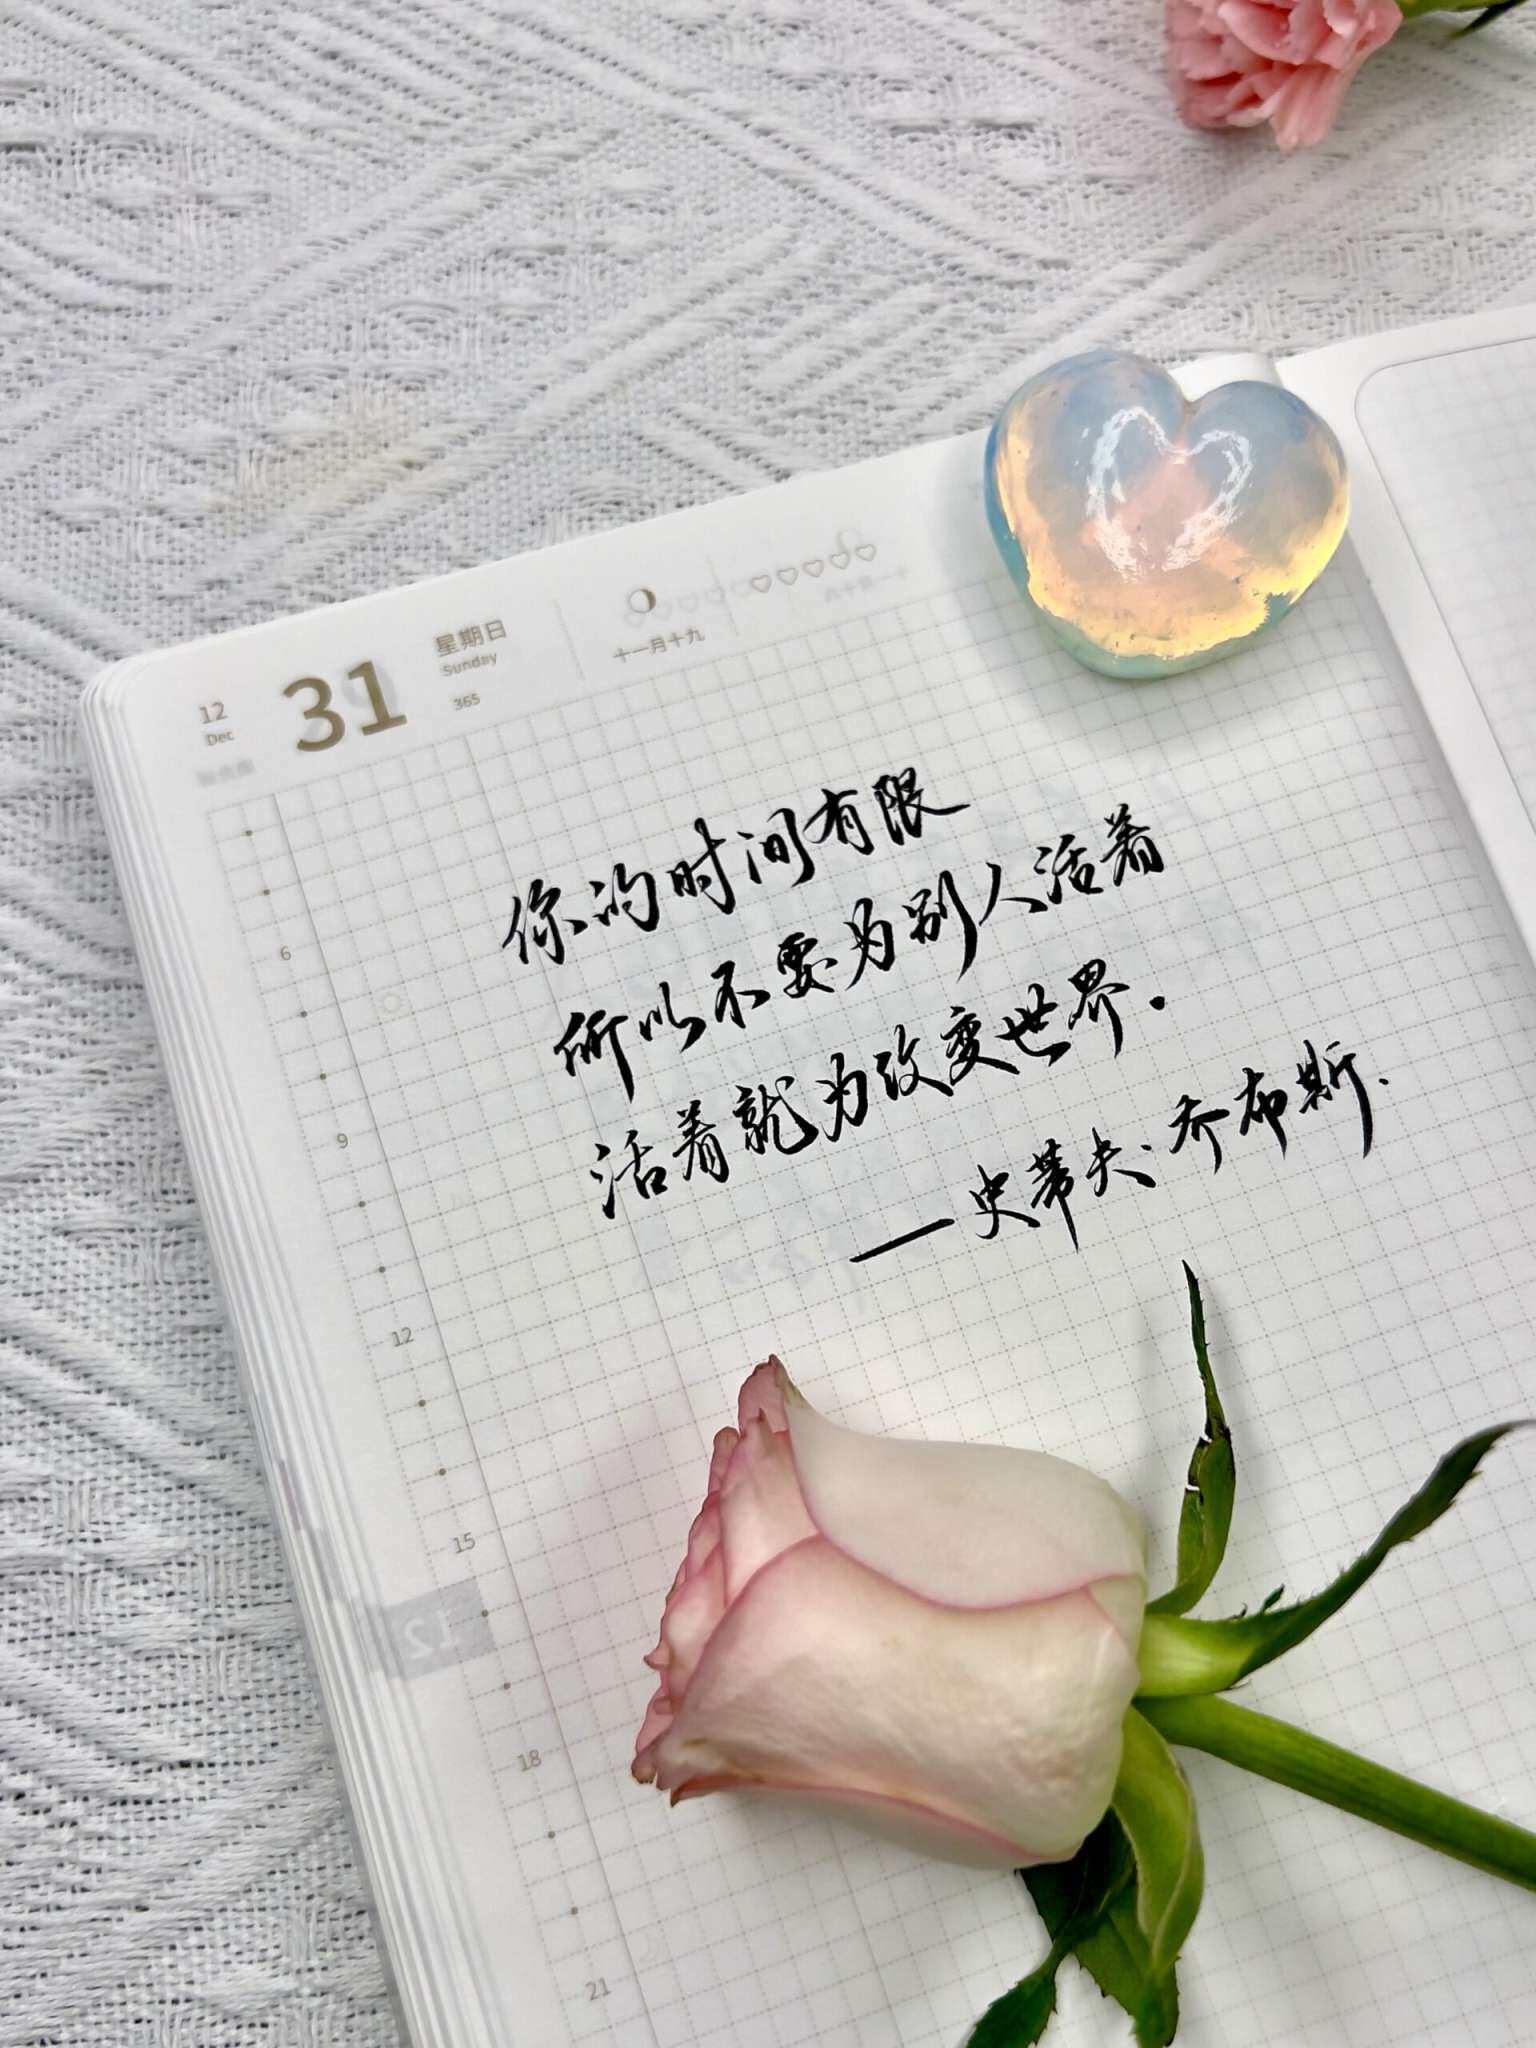 12
Dec
31
星期日
Sunday
365
十一月十九
你的时间有限
所以不要为别人活着
活着就为改变世界.
—史蒂夫·乔布斯.
6
9
12
15
18
21